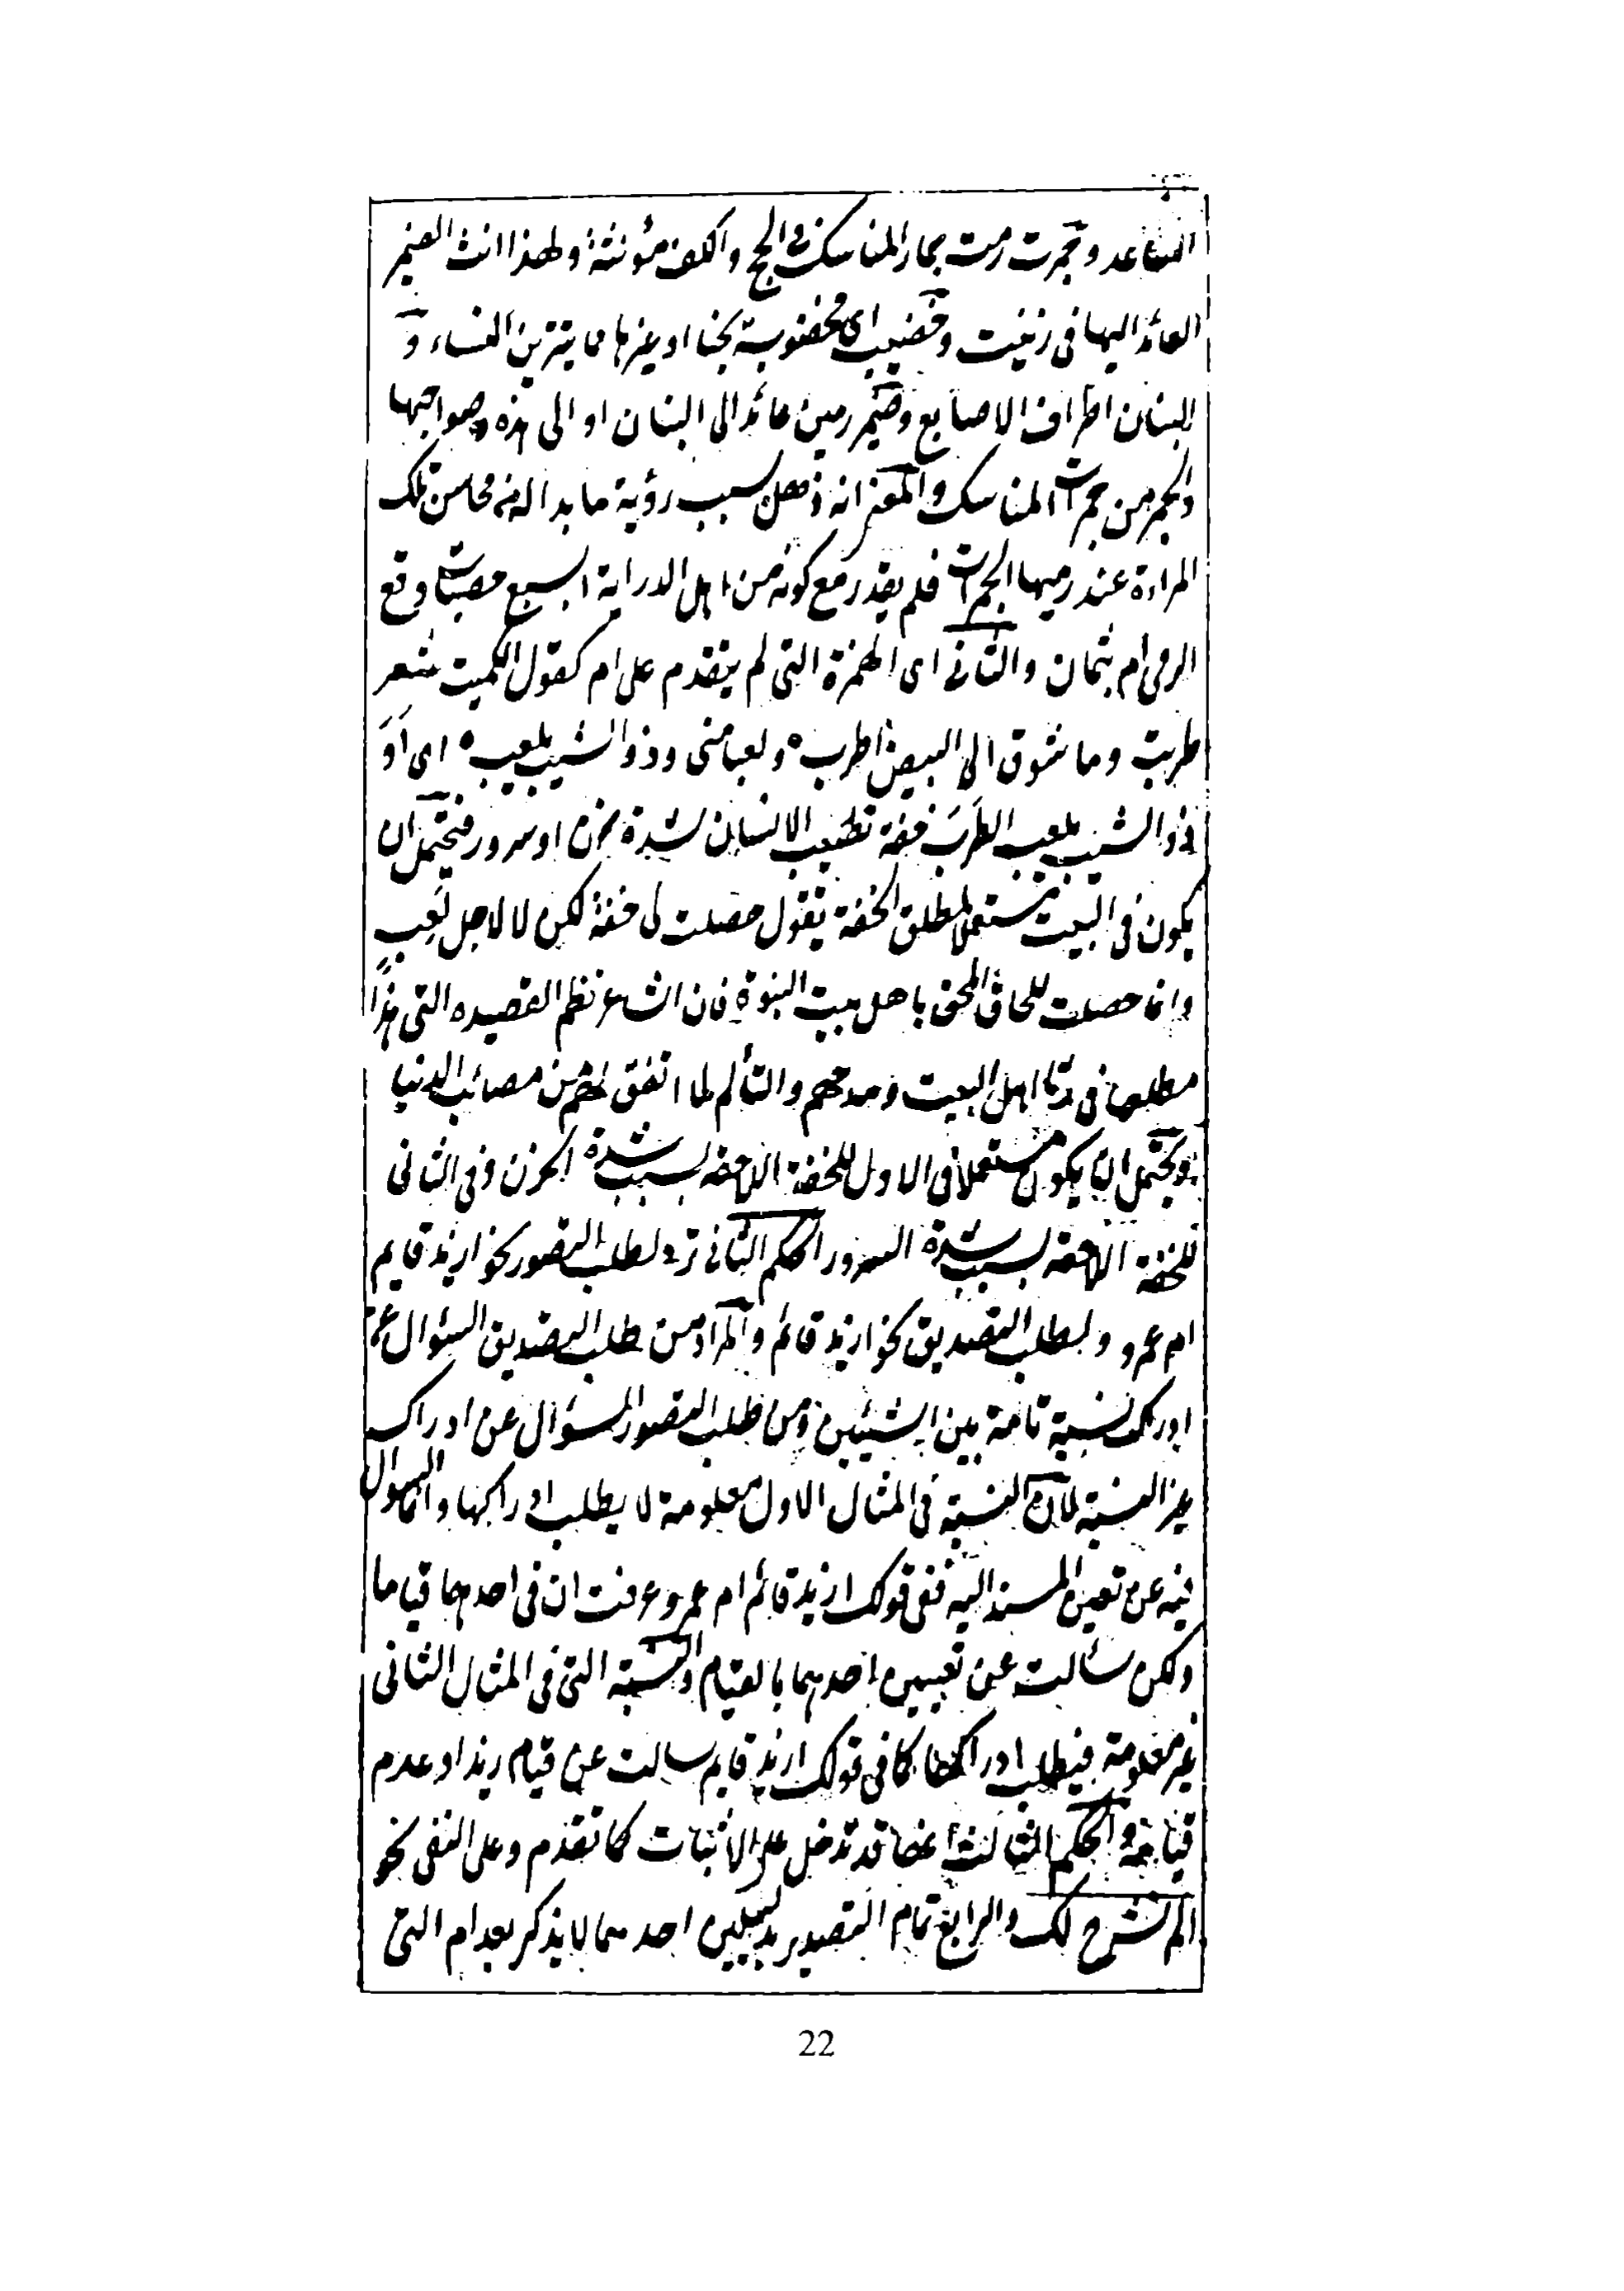 الساعد وجمرت رمت جمار المناسك فى الحج والكف مؤنثة ولهذا انث الضمير
العائد اليها فى زينت وخضيب اى مخضوبة بحنا او غيرها مما يتزين النساء و
البنان اطراف الاصابع وضمير رمين عائد الى البنان او الى هذه وصواحبها
والجمر من جمرات المناسك والمعنى انه ذهل بسبب رؤية ما بدا له من محاسن تلك
المراءة عند رميها الجمرات فلم يقدر مع كونه من اهل الدراية ابسبع حصيات وقع
الرمى ام بثمان والثانى اى الهمزة التى لم يتقدم على ام كقول الكميت شعر
طربت وما شوقا الى البيض اطرب ه ولعبا منى وذو الشيب يلعب ه اى اَوَ
ذو الشيب يلعب الطَرَبَ خفة تصيب الانسان لشدة حزن او سرور فيحتمل ان
يكون فى البيت مستعملا لمطلق الخفة يقول حصلت لى خفة لكن لا لاجل لَعِبٍ
وانما حصلت للحاق المحق باهل بيت النبوة فان الشاعر نظم القصيده التى هذا
مطلعها فى رثا اهل البيت ومدحهم والتألم لما اتفق لهم من مصائب الدنيا
ويحتمل ان يكون مستعملا فى الاول للخفة اللاحقه بسبب شدة الحزن وفى الثانى
للخفة اللاحقه بسبب شدة السرور الحكم الثانى ترد لطلب التصور نحو ازيد قايم
ام عمرو ولطلب التصديق نحو ازيد قائم والمراد من طلب التصديق السؤال عن
ادراك نسبة تامة بين الشيئين ومن طلب التصور السؤال عن ادراك
غير النسبة لان النسبة فى المثال الاول معلومة لا يطلب ادراكها وانما السوال
فيه عن تعيين المسند اليه ففى قولك ازيد قائم ام عمرو عرفت ان فى احدهما قياما
ولكن سئالت عن تعيين احدهما بالقيام والنسبة التى فى المثال الثانى
غير معلومة فيطلب ادراكها كما فى قولك ازيد قايم سالت عن قيام زيد او عدم
قيامه والحكم الثالث انها قد تدخل على الاثبات كما تقدم وعلى النفى نحو
الم نشرح لك والرابع تمام التصدير بدليلين احدهما لا يذكر بعد ام التى
22